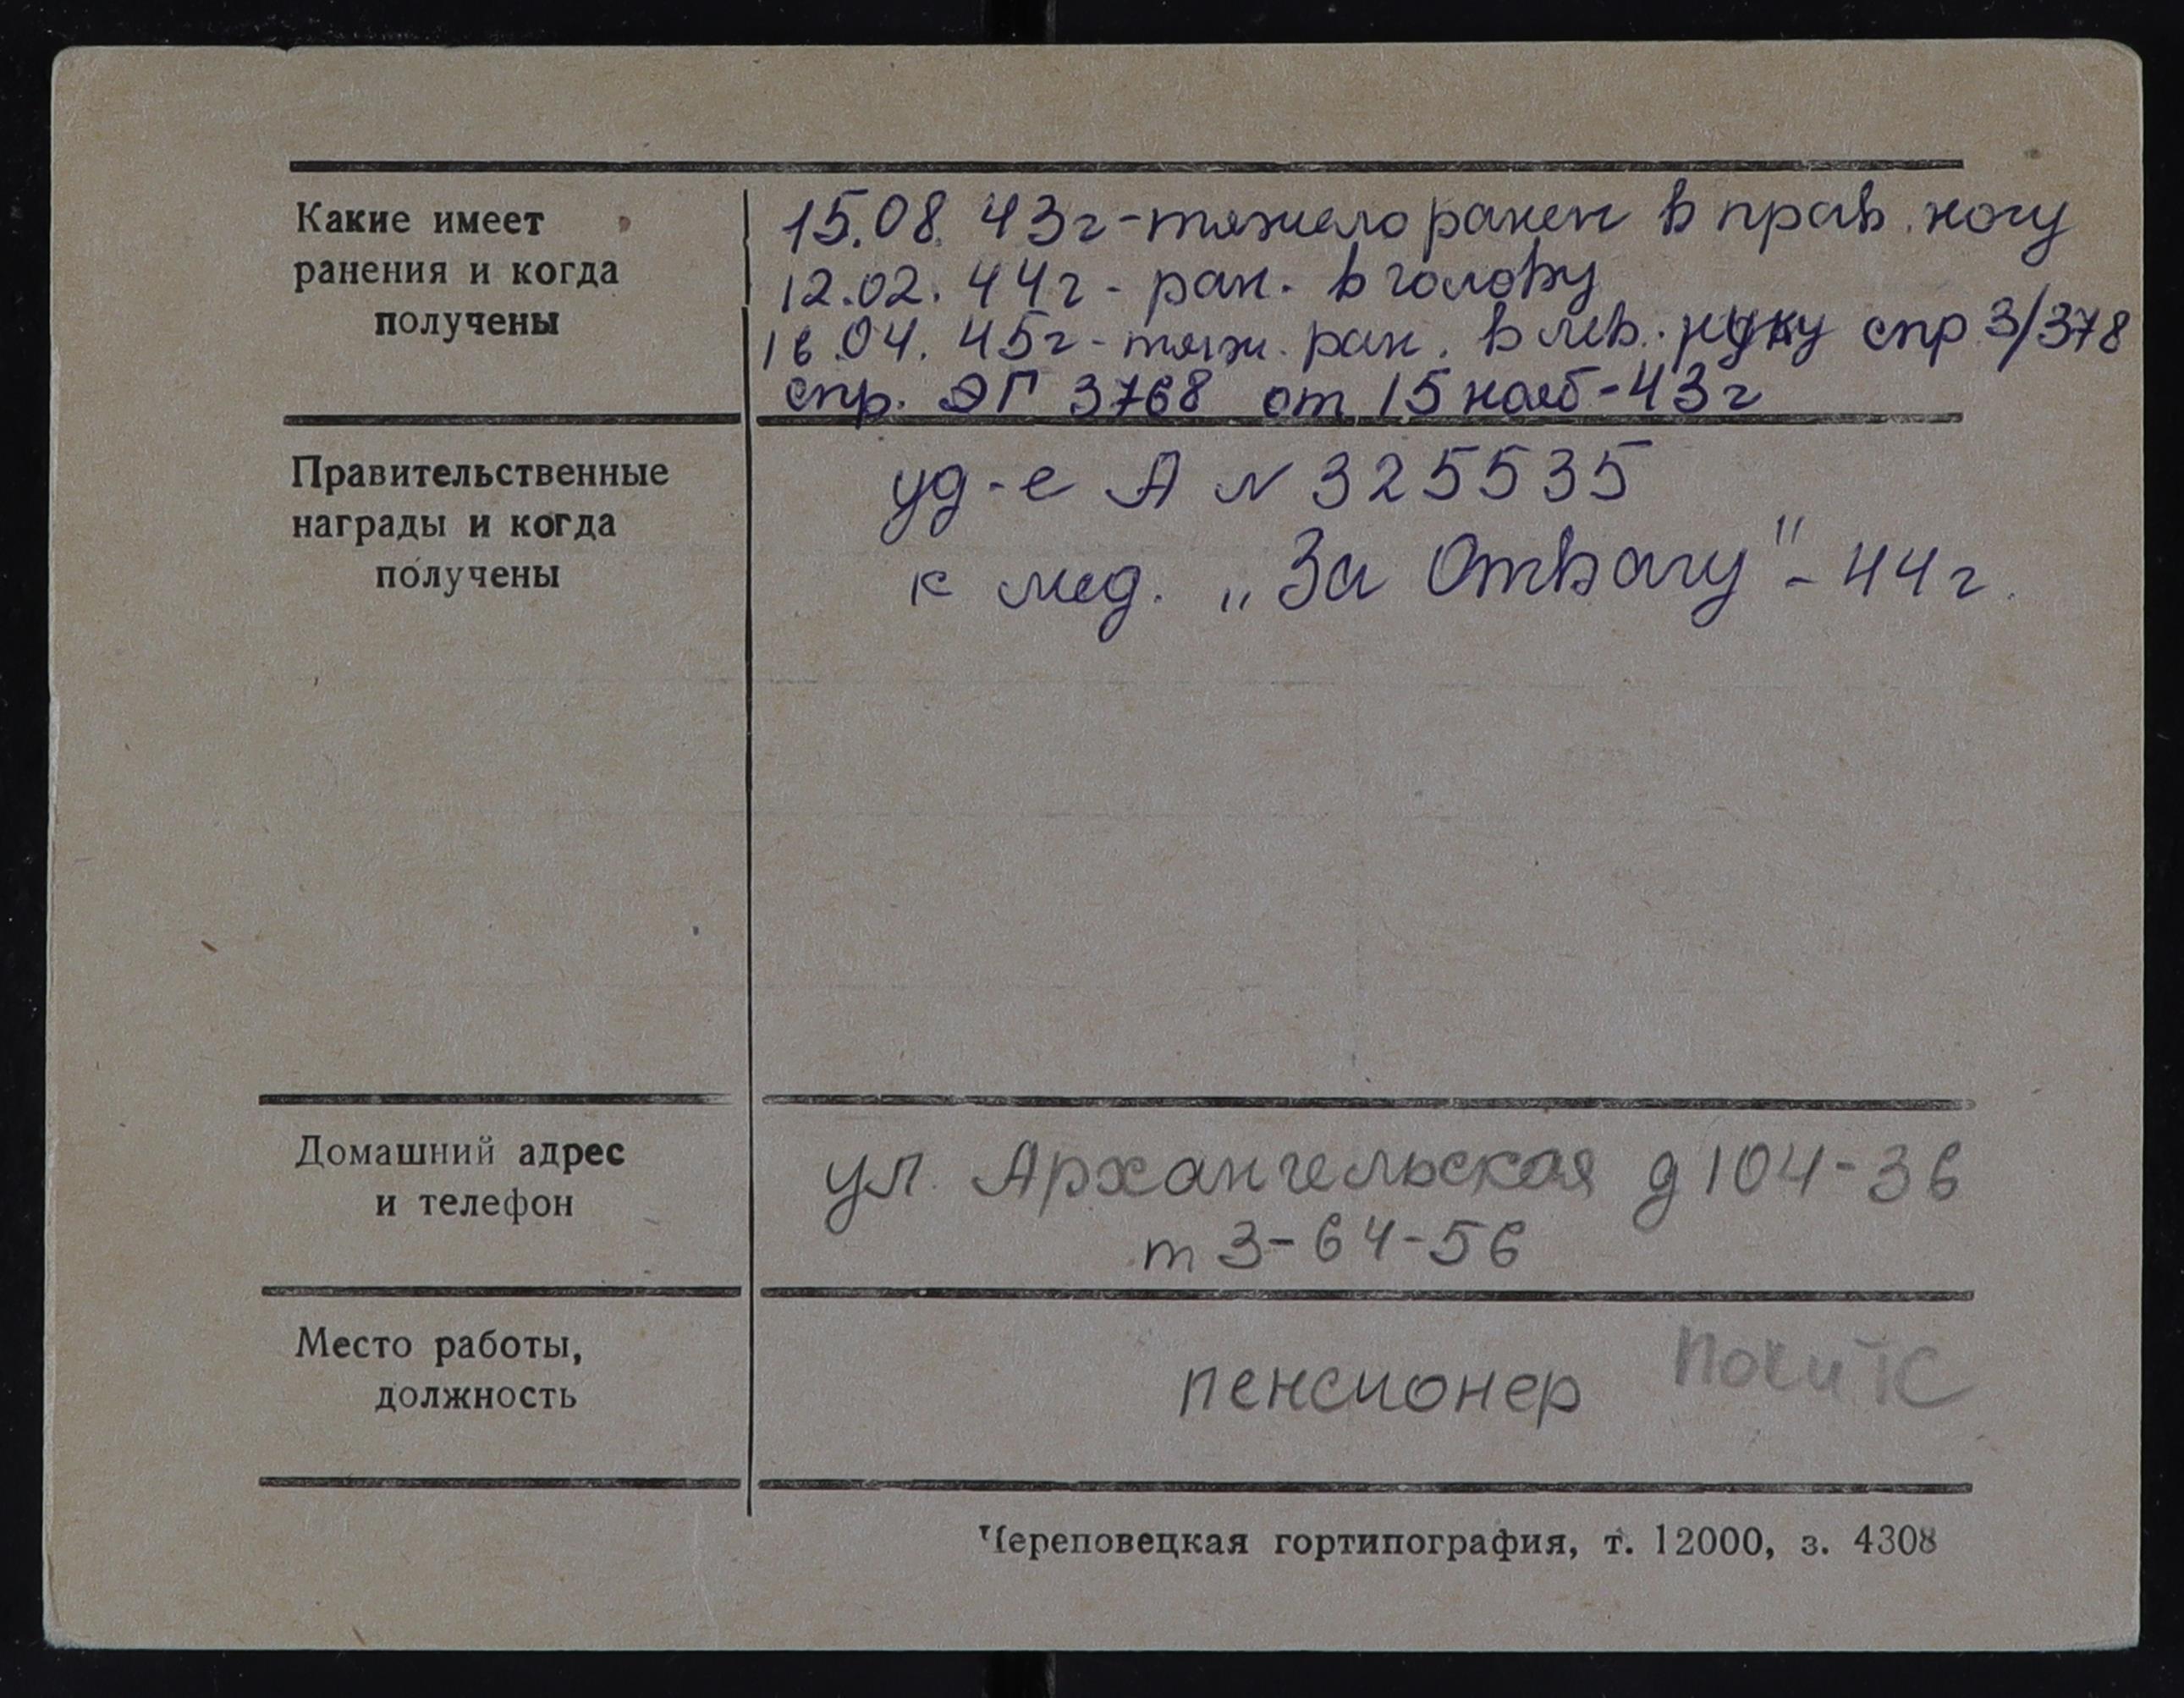 Какие имеет
ранения и когда
получены
15.08.43г-тяжело ранен в прав. ногу
12.02.44г - ран. в голову
16.04.45г - тяж. ран. в лев. руку спр 3/378
спр. ЭГ 3768 от 15 нояб-43г
Правительственные
награды и когда
получены
уд-е А N 325535
к мед. „За Отвагу" - 44г.
Домашний адрес
и телефон
ул. Архангельская д 104-36
т 3-64-56
Место работы,
должность
пенсионер
Череповецкая гортипография, т. 12000, з. 4308